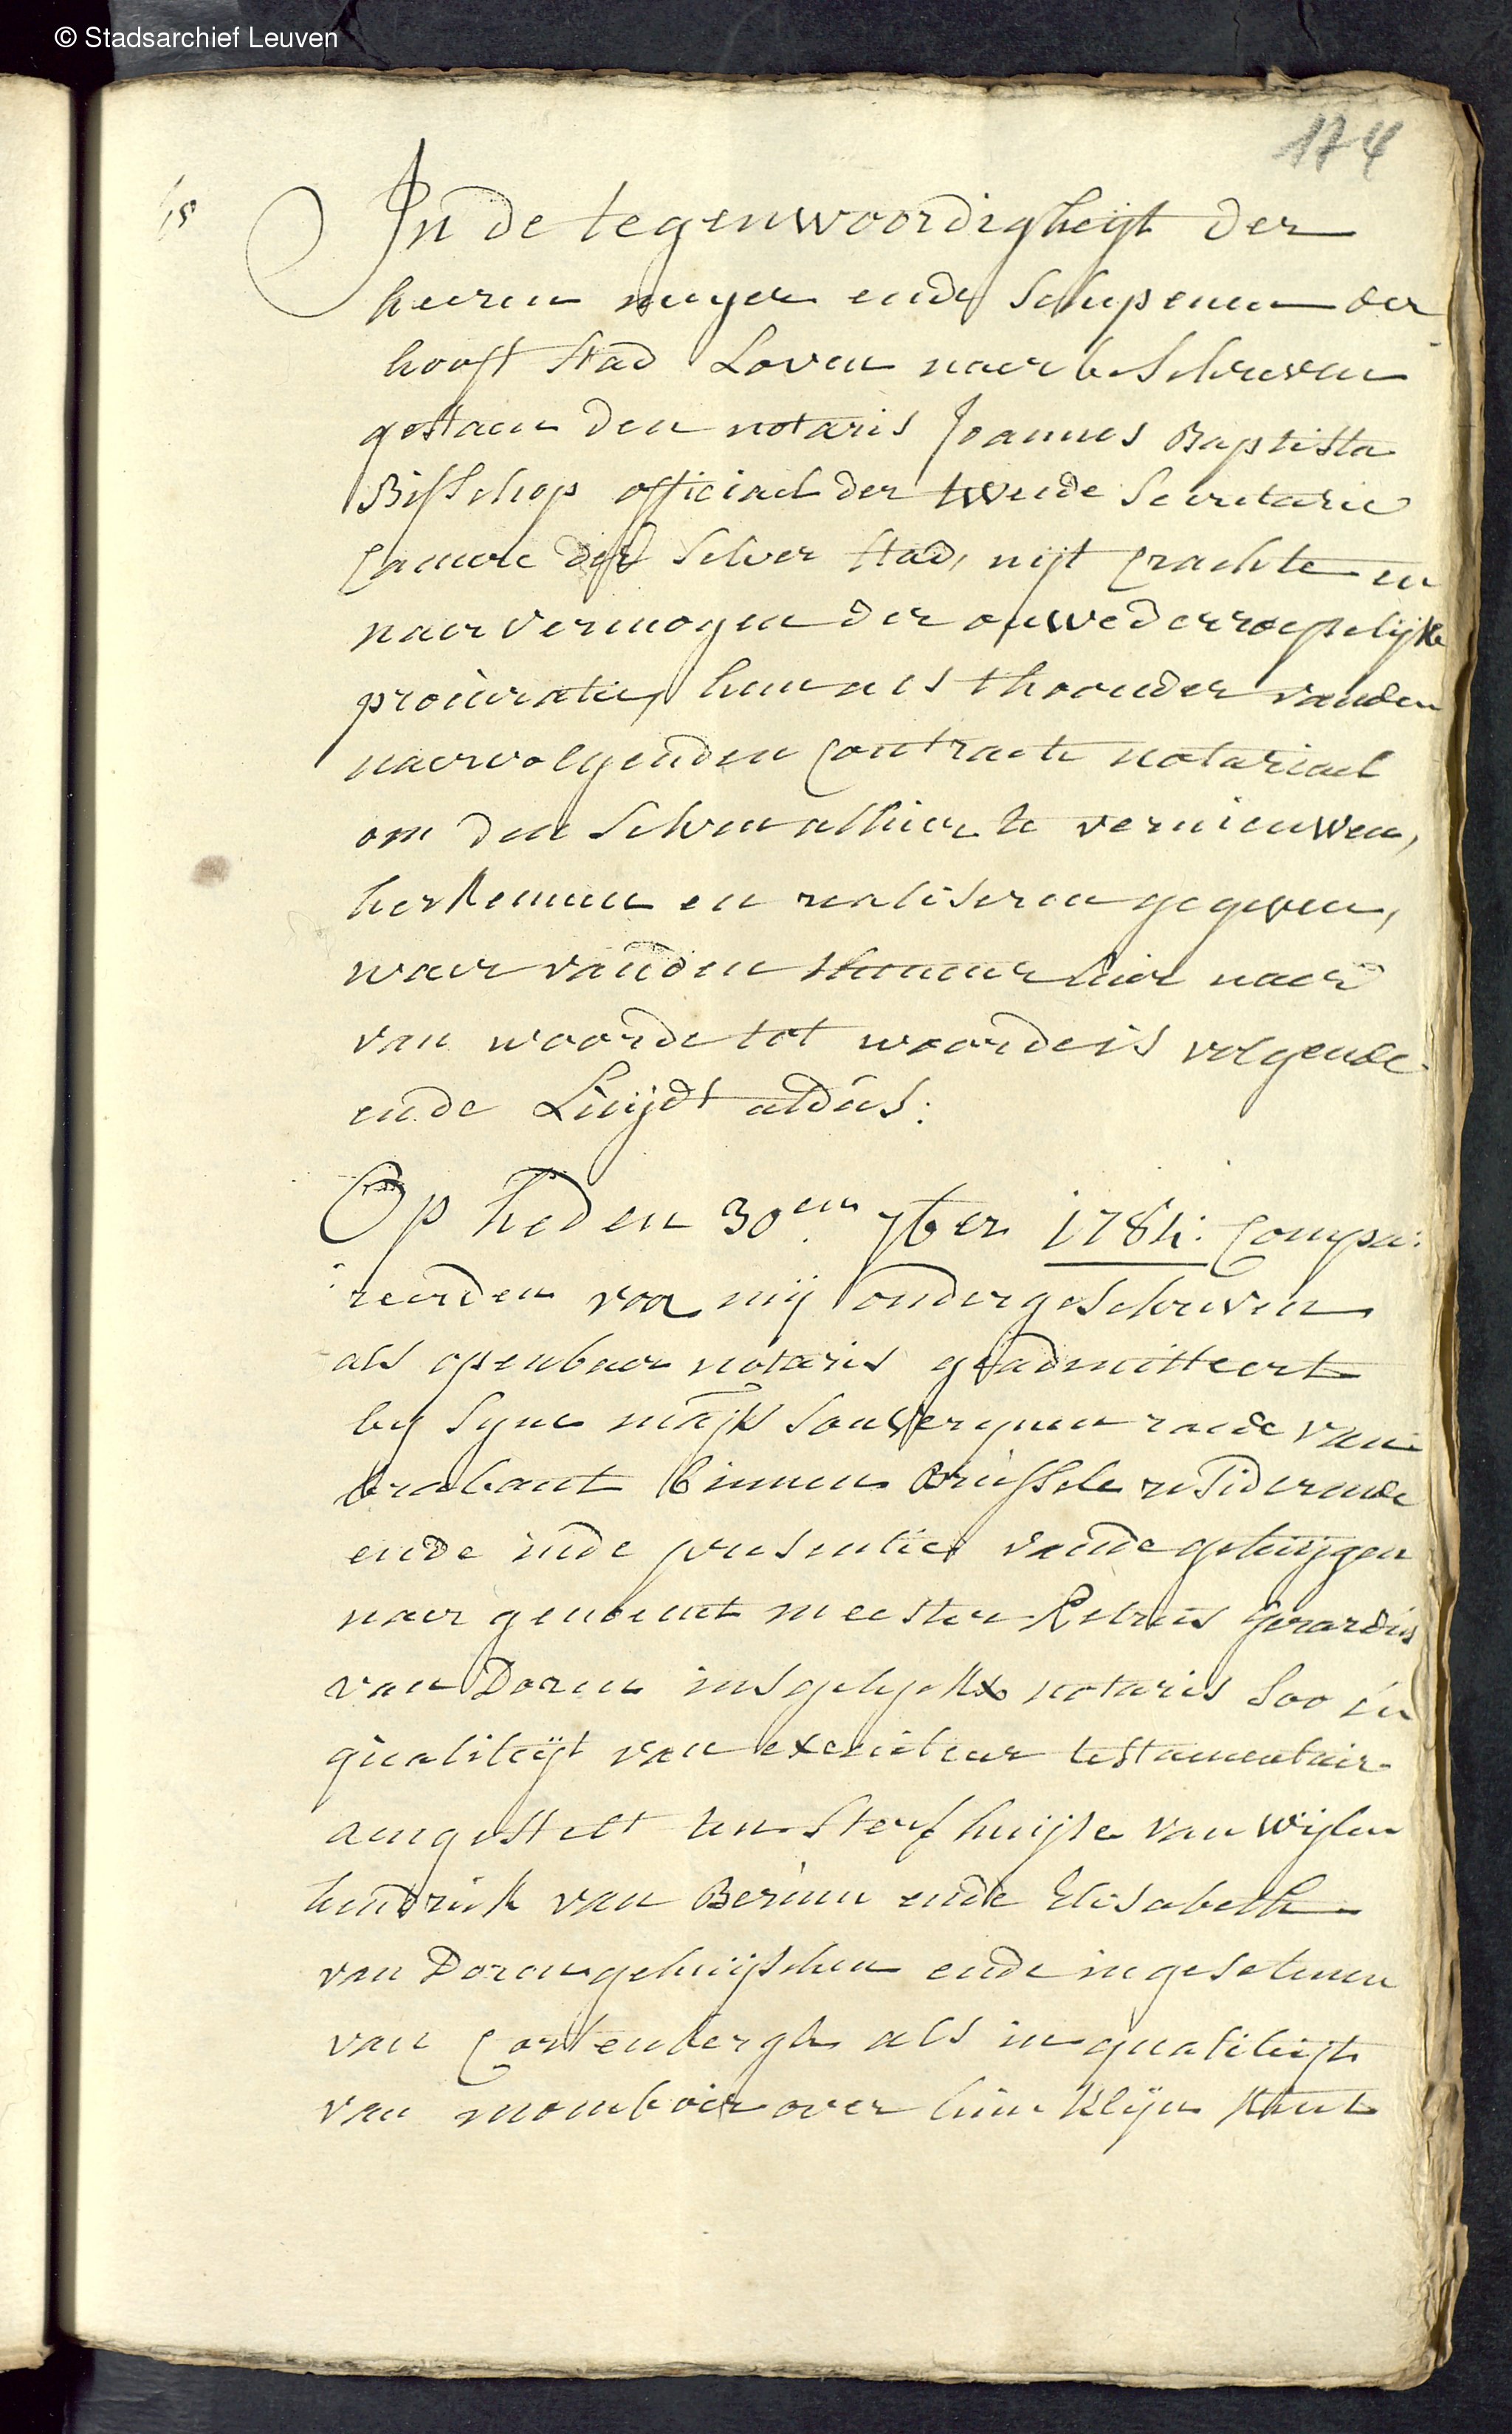 © Stadsarchief Leuven
174
In de tegenwoordigheijt der
heeren meyer ende schepenen der
hooft stad Loven naer beschreven
gestaen den notaris Joannes Baptista
Bisschop officiael der tweede secretarie
Camere deser selver stad, uijt crachte en
naer vermogen der onwederroepelijke
procuratie, hem als thoonder vanden
naervolgenden contracte notariael
om den selven alhier te vernieuwen,
herkennen en realiseren gegeven,
waer van den theneur hier naer
van woorde tot woorde is volgende
ende Luijdt aldus:
Op heden 30en 7ber 1784: Compa:
reerden voor mij ondergeschreven
als openbaer notaris geadmitteert
by syne maj.t souvereynen raede van
brabant binnen Brussele residerende
ende inde presentie vande getuijgen
naer genoemt meester Petrus Gerardus
van Doren insgelyckx notaris soo in
qualiteijt van executeur testamentair
aengestelt ten sterfhuijse van wijlen
hendrick van Berinn ende Elisabeth
van Doren gehuijschen ende ingesetenen
van Cortenbergh als in qualiteijt
van momboir over hun klijn kint